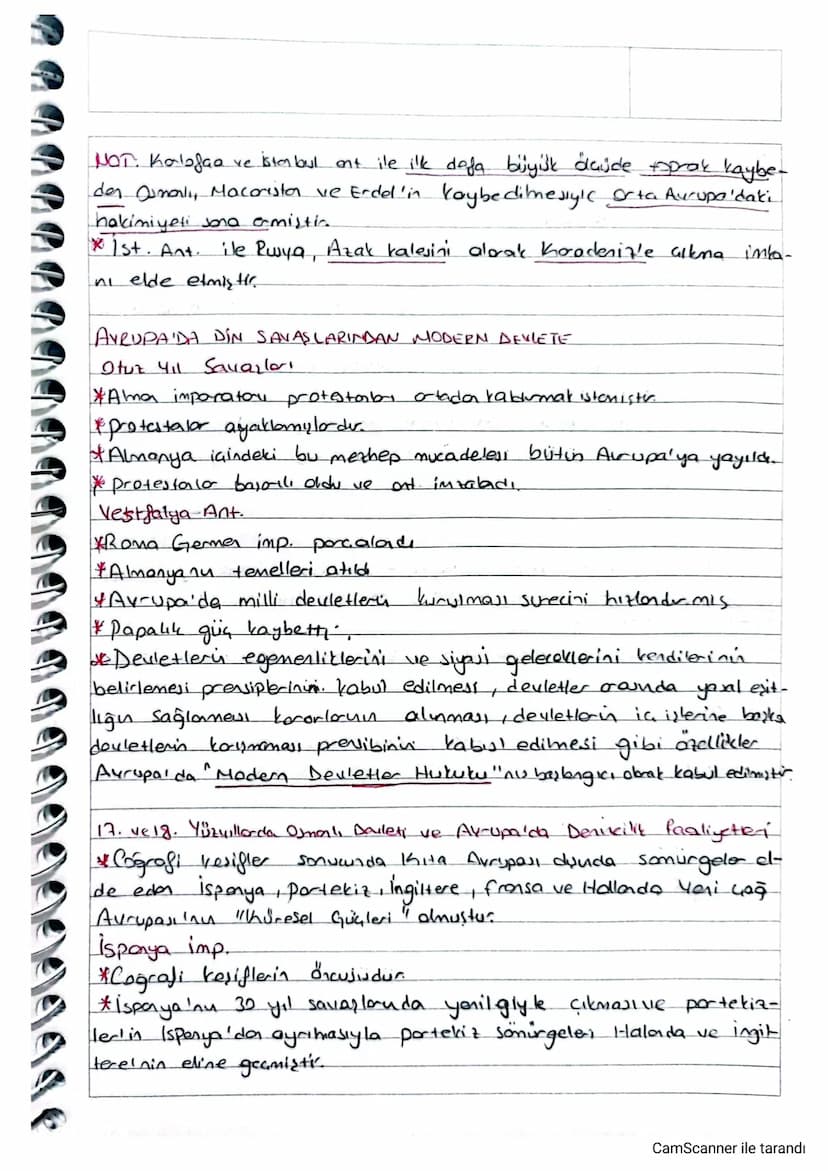 NOT: Karlofça ve İstanbul ant ile ilk defa büyük ölçüde toprak kaybe-
den Osmanlı, Macaristan ve Erdel'in kaybedilmesiyle Orta Avrupa'daki
hakimiyeti sona ermiştir.
* İst. Ant. ile Rusya, Azak kalesini alarak Karadeniz'e çıkma imka-
nı elde etmiştir.
AVRUPA'DA DİN SAVAŞLARINDAN MODERN DEVLETE
Otuz Yıl Savaşları
* Alman imparatoru protestanları ortadan kaldırmak istemiştir.
* protestalar ayaklanmışlardır.
* Almanya içindeki bu mezhep mücadelesi bütün Avrupa'ya yayıldı.
* protestanlar başarılı oldu ve ant. imzaladı.
Vestfalya Ant.
* Roma Germen imp. parçalandı
* Almanyanın temelleri atıldı
* Avrupa'da milli devletlerin kurulması sürecini hızlandırmış
* Papalık güç kaybetti.
* Devletlerin egemenliklerini ve siyasi geleceklerini kendilerinin
belirlemesi prensiplerinin kabul edilmesi, devletler arasında yasal eşit-
liğin sağlanması kararlarının alınması, devletlerin iç işlerine başka
devletlerin karışmaması prensibinin kabul edilmesi gibi özellikler
Avrupa'da "Modern Devletler Hukuku"nu başlangıcı olarak kabul edilmiştir.
17. ve 18. Yüzyıllarda Osmanlı Devleti ve Avrupa'da Denizcilik Faaliyetleri
* Coğrafi keşifler sonucunda Kıta Avrupası dışında sömürgeler el-
de eden İspanya, Portekiz, İngiltere, fransa ve Hollanda Yeni çağ
Avrupası'nın "Küresel Güçleri" olmuştur.
İspanya imp.
* Coğrafi keşiflerin öncüsüdür.
* İspanya'nın 30 yıl savaşlarında yenilgiyle çıkması ve portekiz-
lerin İspanya'dan ayrılmasıyla portekiz sömürgeleri Halanda ve ingil-
tere'nin eline geçmiştir.
CamScanner ile tarandı